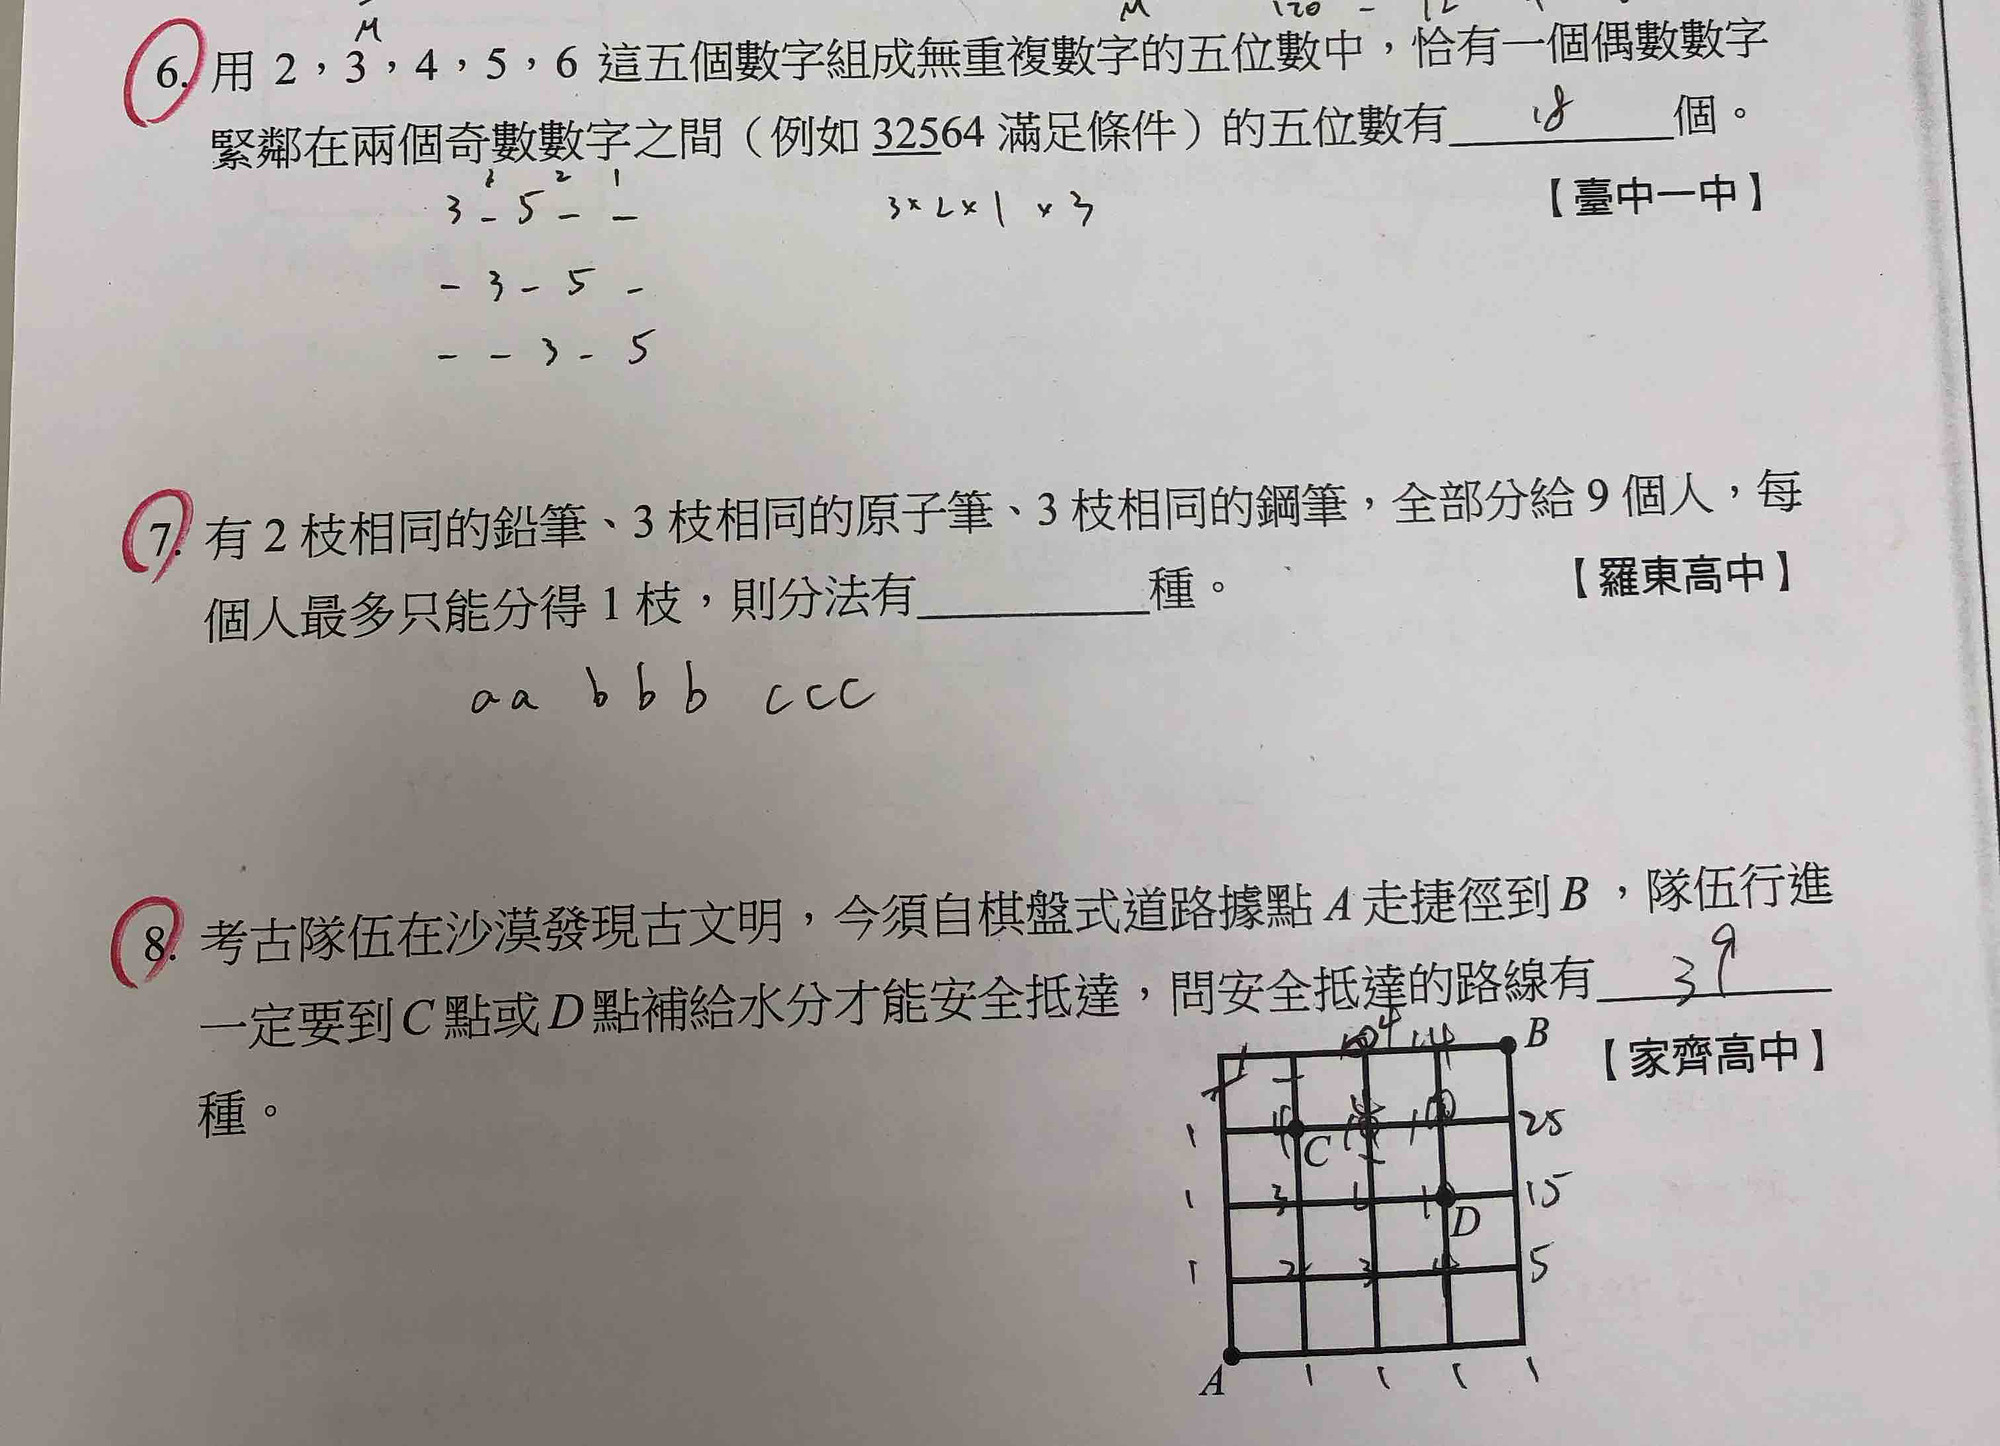 6. 用 2，3，4，5，6 這五個數字組成無重複數字的五位數中，恰有一個偶數數字
緊鄰在兩個奇數數字之間（例如 32564 滿足條件）的五位數有 18 個。
【臺中一中】
3 - 5 - -
3×2×1×3
- 3 - 5 -
- - 3 - 5
7. 有 2 枝相同的鉛筆、3 枝相同的原子筆、3 枝相同的鋼筆，全部分給 9 個人，每
個人最多只能分得 1 枝，則分法有
種。
【羅東高中】
aa bbb ccc
8. 考古隊伍在沙漠發現古文明，今須自棋盤式道路據點 A 走捷徑到 B，隊伍行進
一定要到 C 點或 D 點補給水分才能安全抵達，問安全抵達的路線有 39
種。
【家齊高中】
B
1 25
C
1 3 15
D
1 2 3 5
A 1 1 1 1